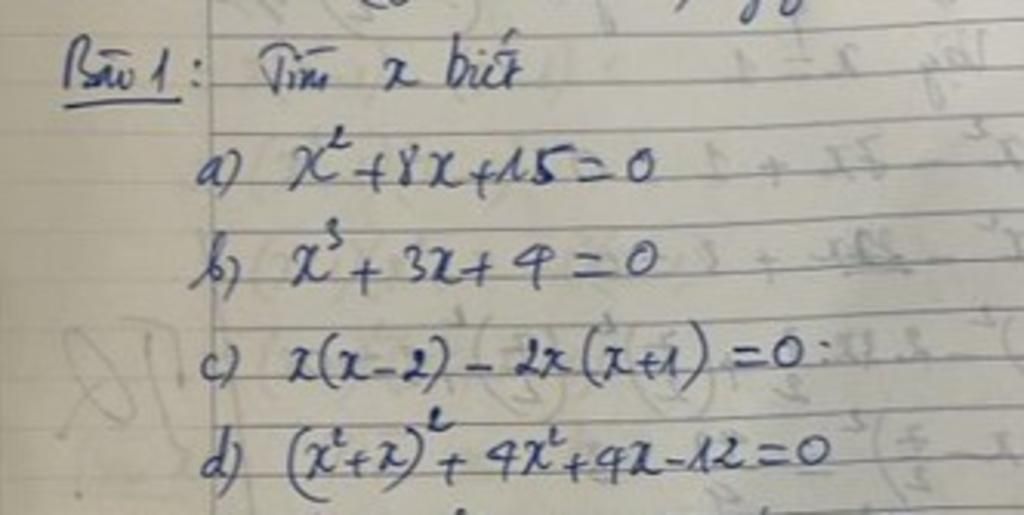 Bài 1: Tìm x biết
a) x² + 8x + 15 = 0
b) x³ + 3x + 4 = 0
c) x(x - 2) - 2x(x + 1) = 0
d) (x² + x)² + 4x² + 4x - 12 = 0